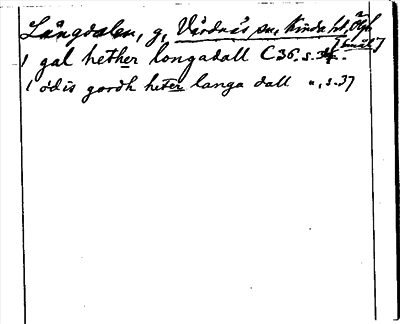 Långdalen, g, Vårdnäs sn, Kinda hd, Ögl
[SmåL]
1 gal hether longadall C 36. s. 34.
1 ödis gordh heter langa dall ", s. 37